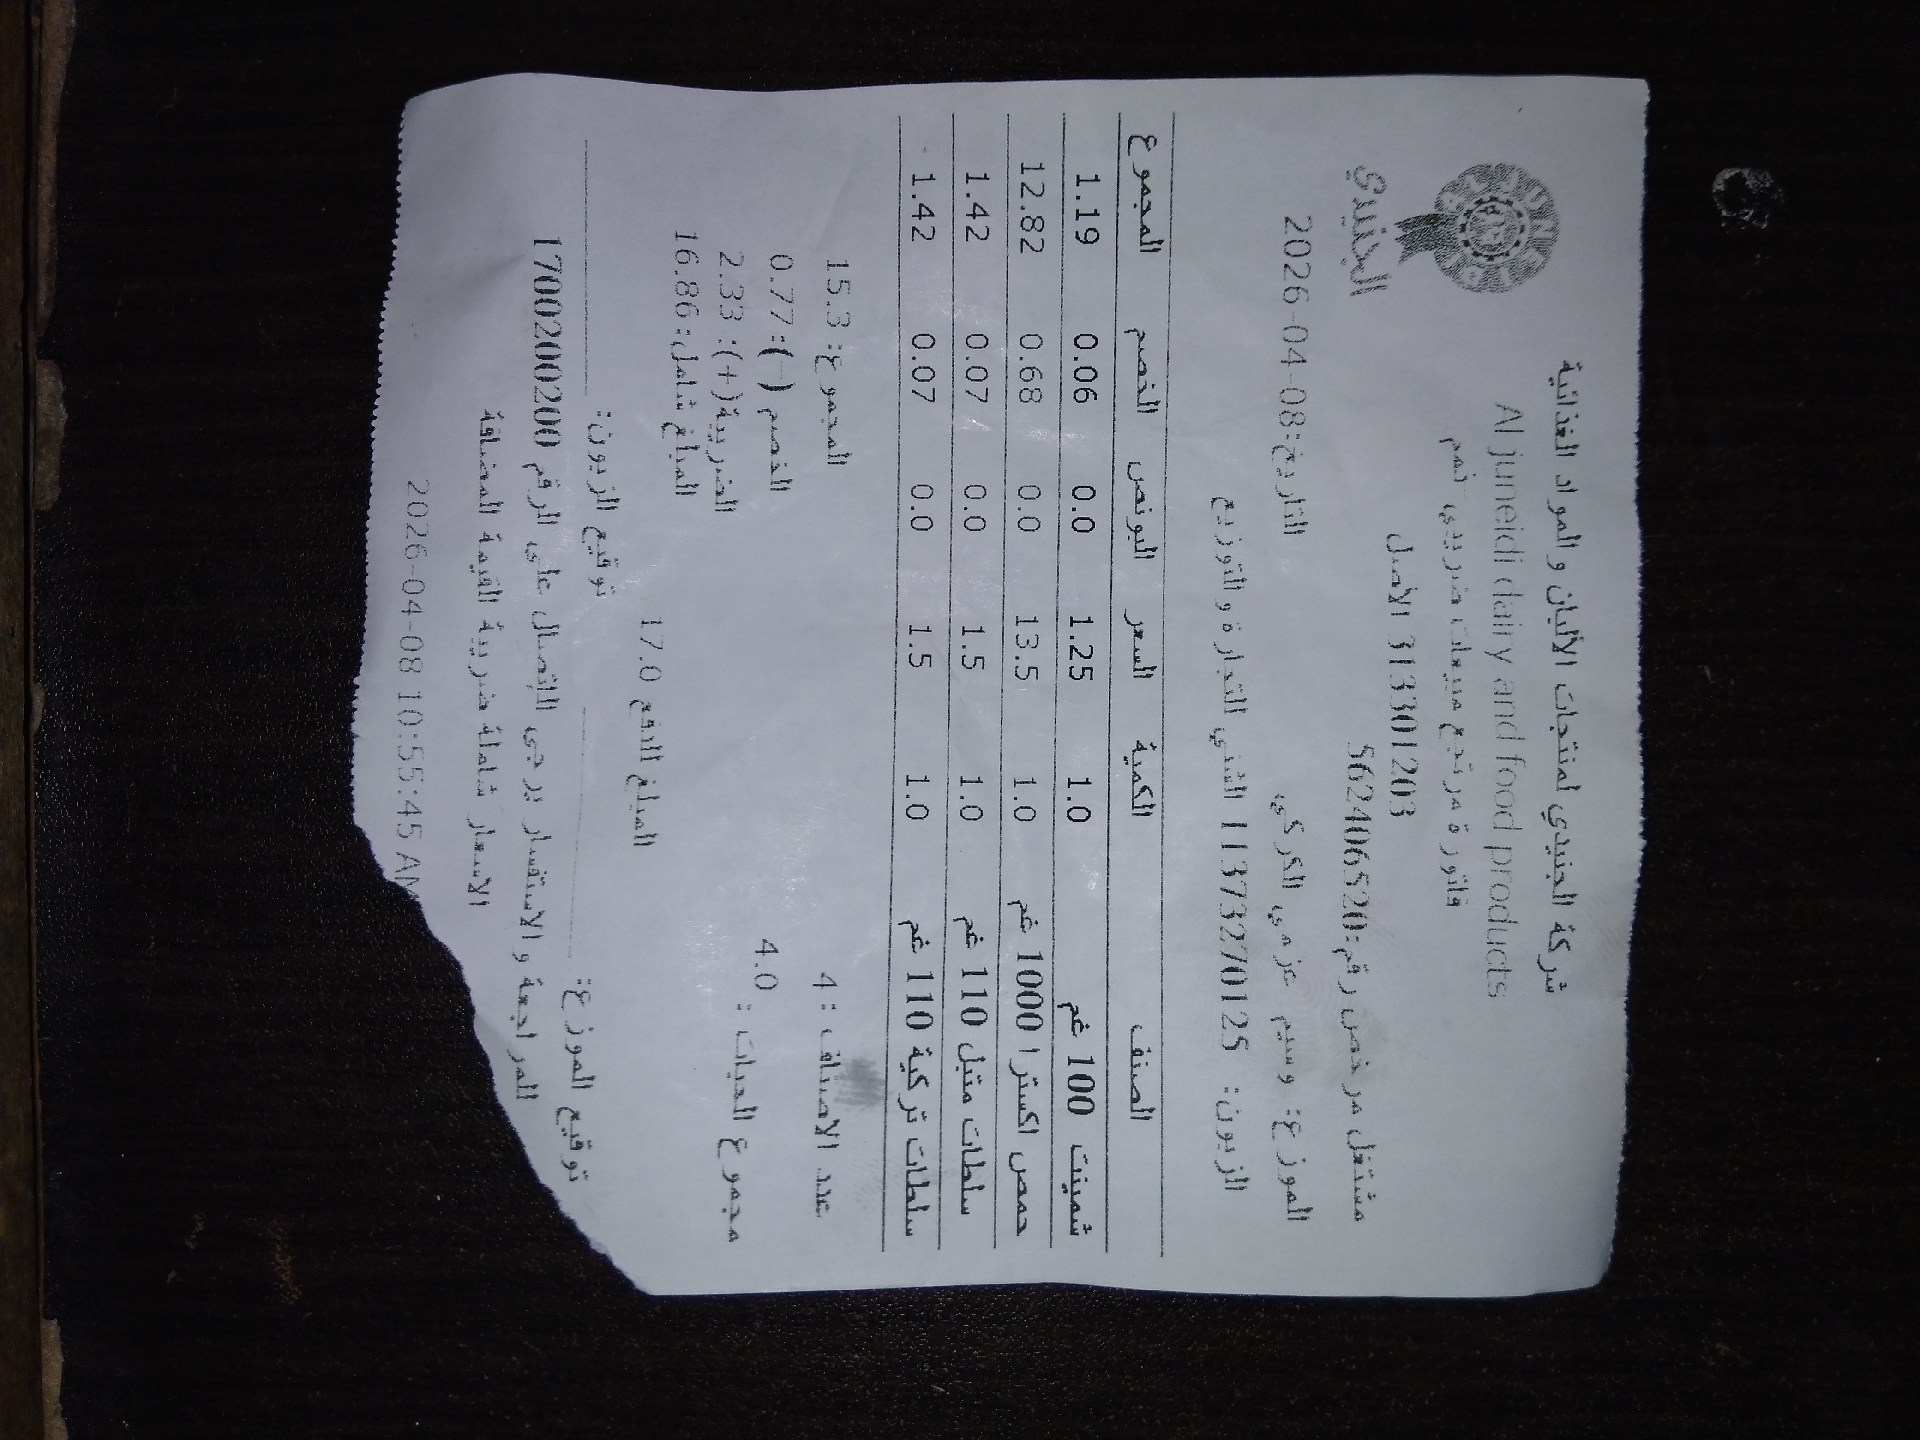 شركة الجنيدي لمنتجات الألبان و المواد الغذائية
Al juneidi dairy and food products
الجنيدي
فاتورة مرتجع مبيعات ضريبي ذمم
313301203 الأصل
مشتغل مرخص رقم:562406520
الموزع: وسيم عزمي الكركي التاريخ:2026-04-08
الزبون: 11373270125 الثني التجارة و التوزيع
الصنف الكمية السعر البونص الخصم المجموع
شمينت 100 غم 1.0 1.25 0.0 0.06 1.19
حمص اكسترا 1000 غم 1.0 13.5 0.0 0.68 12.82
سلطات متبل 110 غم 1.0 1.5 0.0 0.07 1.42
سلطات تركية 110 غم 1.0 1.5 0.0 0.07 1.42
عدد الاصناف : 4 المجموع: 15.3
مجموع الحبات : 4.0 الخصم (-): 0.77
الضريبة(+): 2.33
المبلغ شامل: 16.86
المبلغ الدفع 17.0
توقيع الموزع: توقيع الزبون:
للمراجعة و الاستفسار يرجى الاتصال على الرقم 1700200200
الاسعار شاملة ضريبة القيمة المضافة
2026-04-08 10:55:45 AM